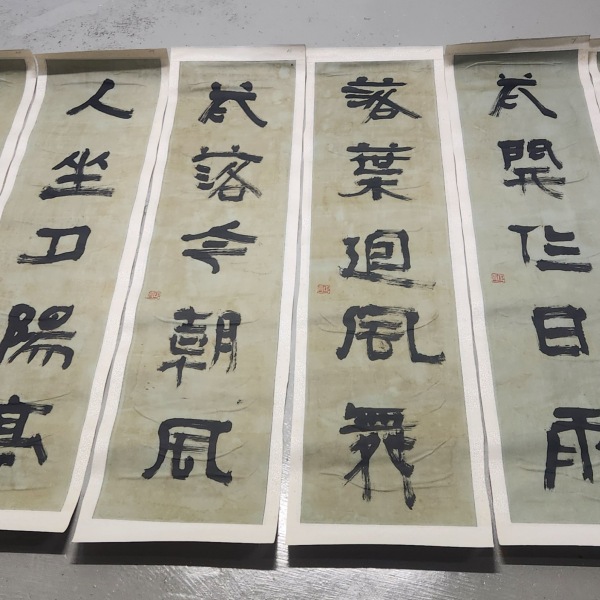 花開作日雨
落葉迴風舞
花落今朝風
人坐夕陽亭